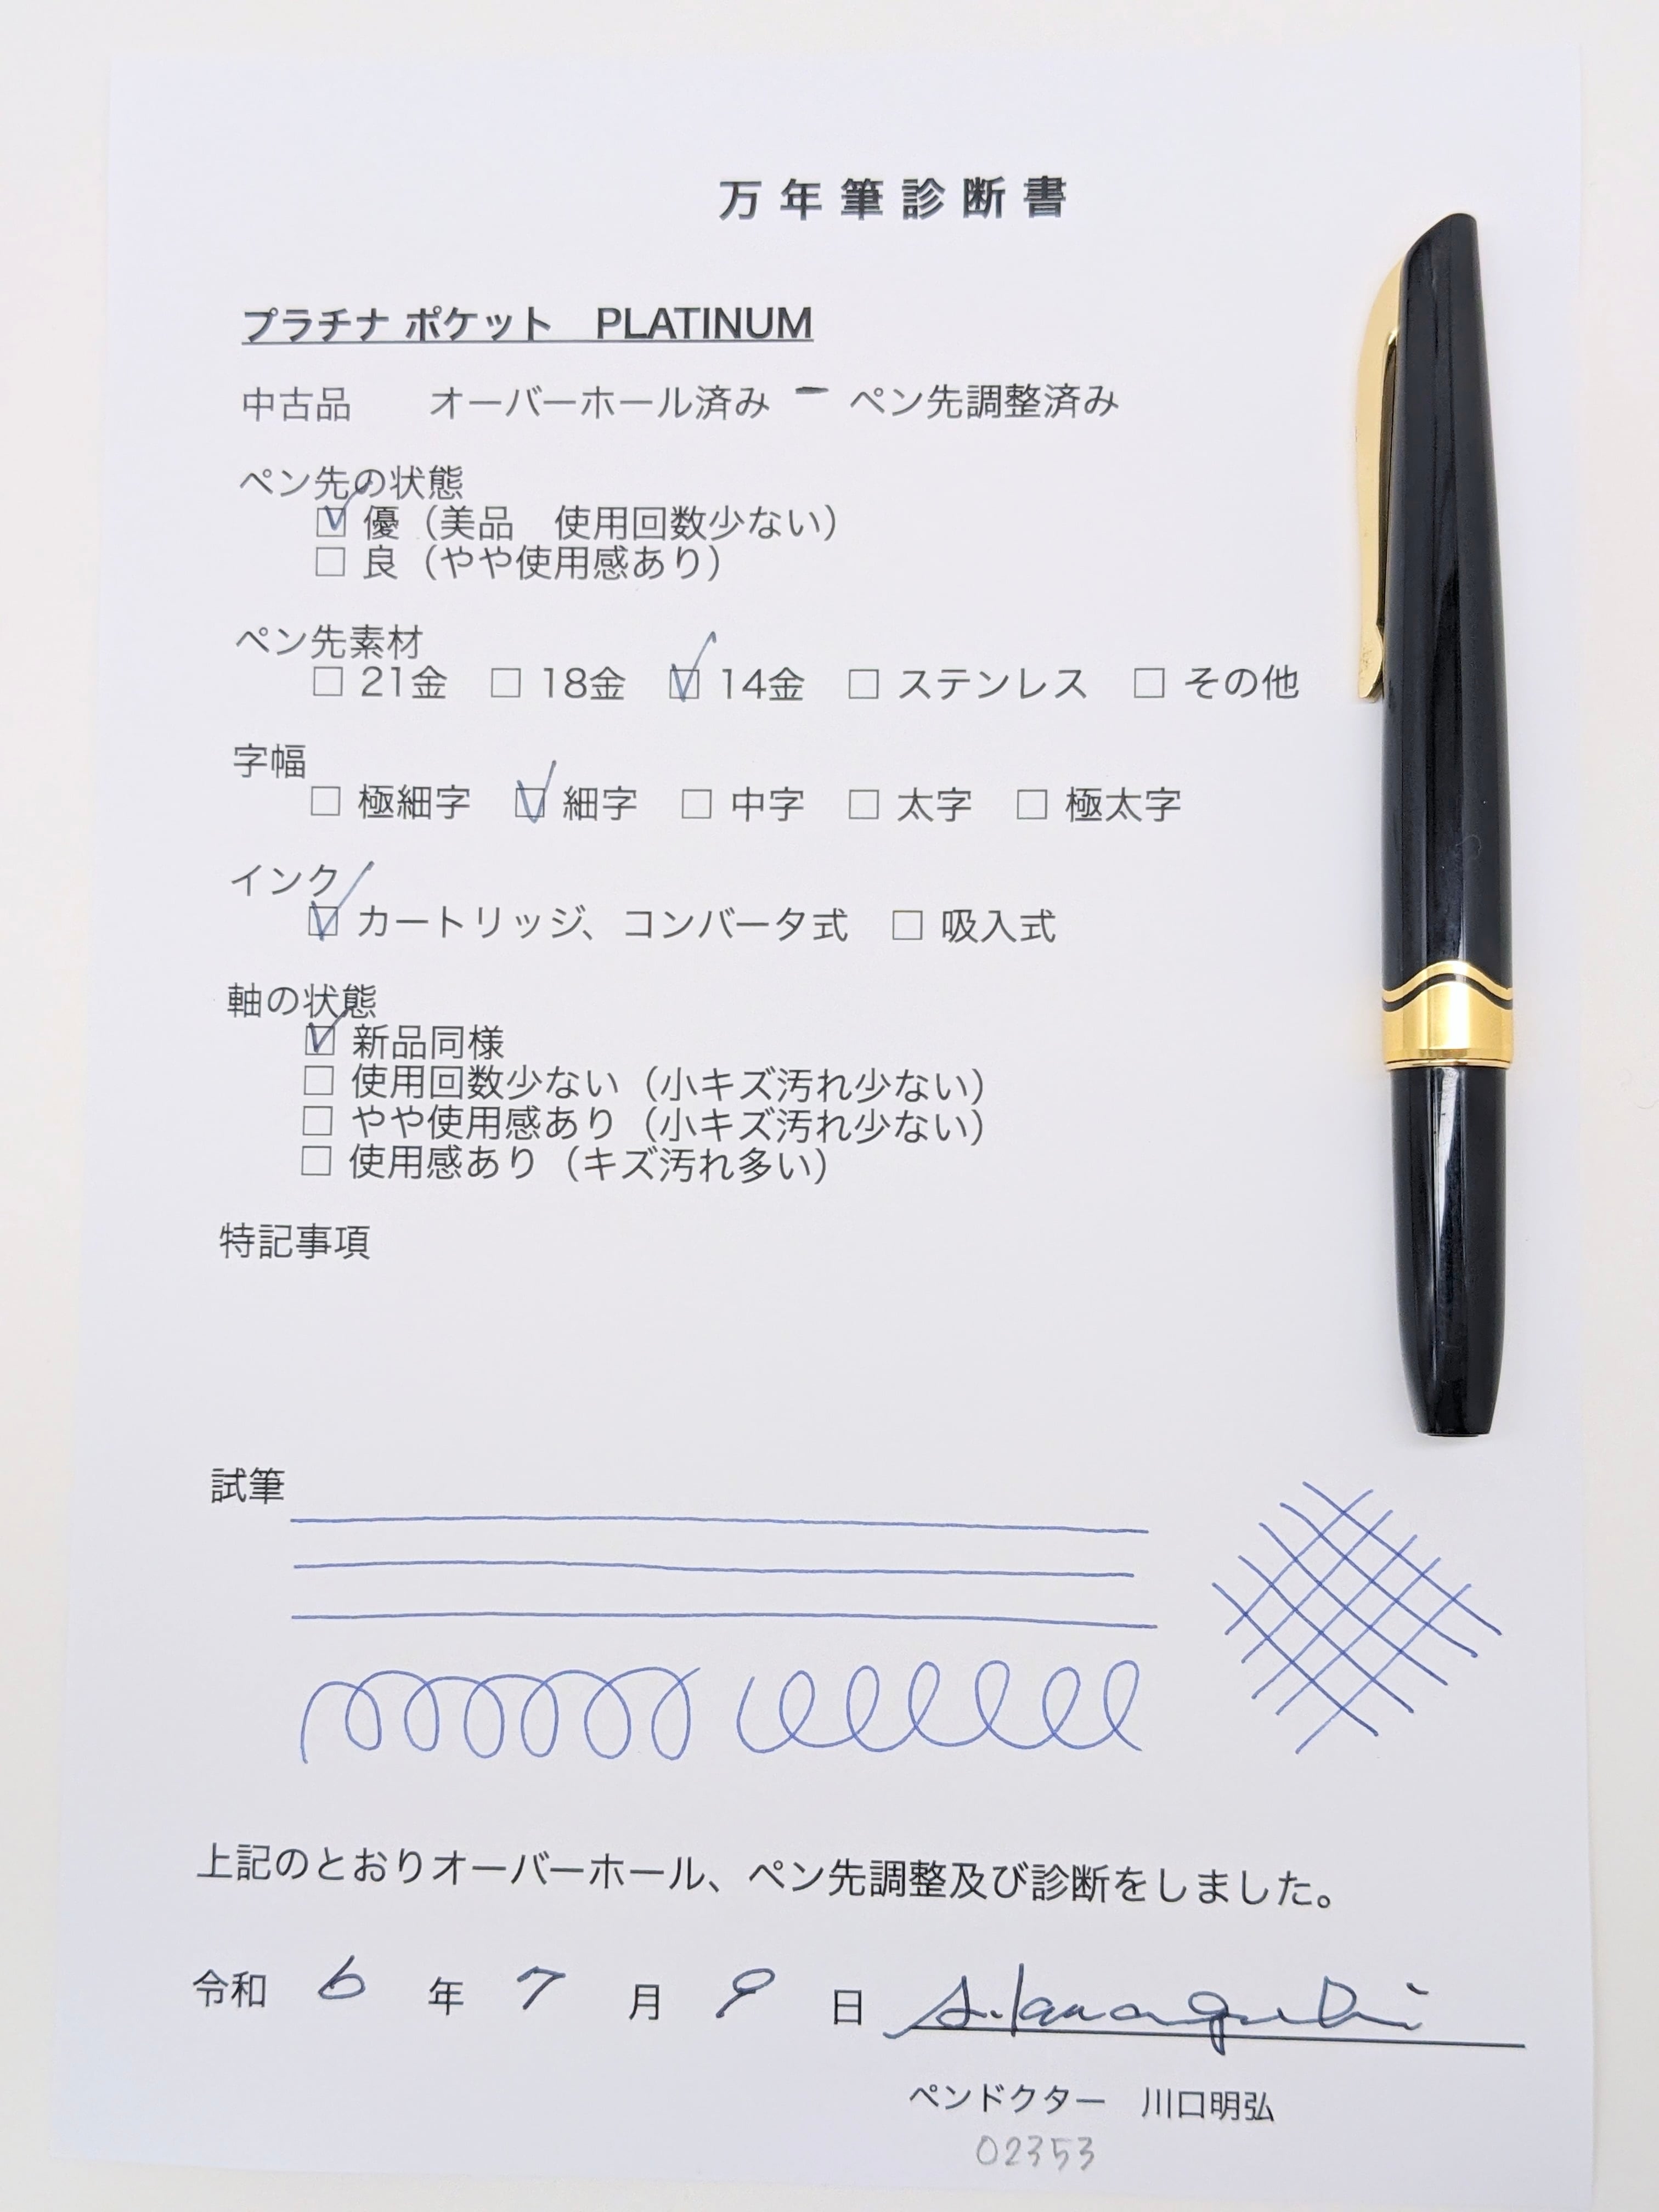 万年筆診断書
プラチナ ポケット　PLATINUM
中古品　　オーバーホール済み ー ペン先調整済み
ペン先の状態
☑ 優（美品　使用回数少ない）
☐ 良（やや使用感あり）
ペン先素材
☐ 21金　☐ 18金　☑ 14金　☐ ステンレス　☐ その他
字幅
☐ 極細字　☑ 細字　☐ 中字　☐ 太字　☐ 極太字
インク
☑ カートリッジ、コンバータ式　☐ 吸入式
軸の状態
☑ 新品同様
☐ 使用回数少ない（小キズ汚れ少ない）
☐ やや使用感あり（小キズ汚れ少ない）
☐ 使用感あり（キズ汚れ多い）
特記事項
試筆
上記のとおりオーバーホール、ペン先調整及び診断をしました。
令和 6 年 7 月 9 日 A.Kawaguchi
ペンドクター　川口明弘
02353